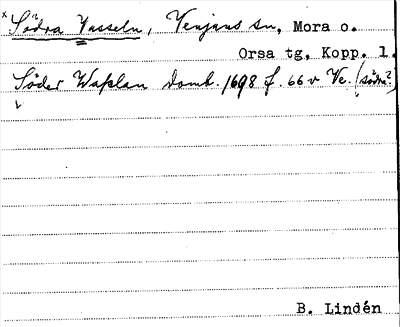 *Södra Vasseln, Venjans sn, Mora o.
Orsa tg, Kopp. l.
Söder Waßlan Domb. 1698 f. 66 v Ve. (södr?)
B. Lindén